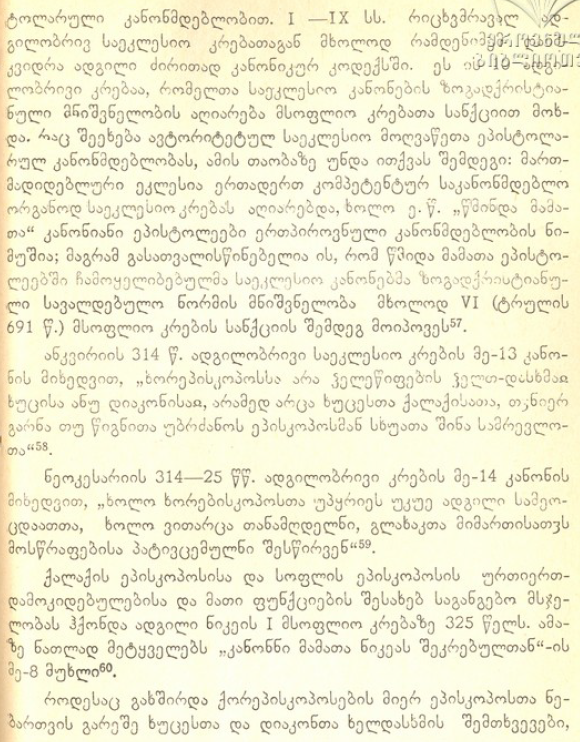 ტოლარული კანონმდებლობით. I —IX სს. რიცხვმრავალ ად-
გილობრივ საეკლესიო კრებათაგან მხოლოდ რამდენიმემ დაიმ-
კვიდრა ადგილი ძირითად კანონიკურ კოდექსში. ეს ის ადგი-
ლობრივი კრებაა, რომელთა საეკლესიო კანონების ზოგადქრისტია-
ნული მნიშვნელობის აღიარება მსოფლიო კრებათა სანქციით მოხ-
და. რაც შეეხება ავტორიტეტულ საეკლესიო მოღვაწეთა ეპისტოლა-
რულ კანონმდებლობას, ამის თაობაზე უნდა ითქვას შემდეგი: მართ-
მადიდებლური ეკლესია ერთადერთ კომპეტენტურ საკანონმდებლო
ორგანოდ საეკლესიო კრებას აღიარებდა, ხოლო ე. წ. „წმინდა მამა-
თა“ კანონიანი ეპისტოლეები ერთპიროვნული კანონმდებლობის ნი-
მუშია; მაგრამ გასათვალისწინებელია ის, რომ წმიდა მამათა ეპისტო-
ლეებში ჩამოყალიბებულმა საეკლესიო კანონებმა ზოგადქრისტიანუ-
ლი სავალდებულო ნორმის მნიშვნელობა მხოლოდ VI (ტრულის
691 წ.) მსოფლიო კრების სანქციის შემდეგ მოიპოვეს⁵⁷.
ანკვირიის 314 წ. ადგილობრივი საეკლესიო კრების მე-13 კანო-
ნის მიხედვით, „ხორეპისკოპოსსა არა ჴელეწიფების ჴელთ-დასხმაჲ
ხუცისა ანუ დიაკონისაჲ, არამედ არცა ხუცესთა ქალაქისათა, თჳნიერ
გარნა თუ წიგნითა უბრძანოს ეპისკოპოსმან სხუათა შინა სამრევლო-
თა“⁵⁸.
ნეოკესარიის 314—25 წწ. ადგილობრივი კრების მე-14 კანონის
მიხედვით, „ხოლო ხორებისკოპოსთა უპყრიეს უკუე ადგილი სამეო-
ცდაათთა, ხოლო ვითარცა თანამღდელნი, გლახაკთა მიმართისათჳს
მოსწრაფებისა პატივცემულნი შესწირვენ“⁵⁹.
ქალაქის ეპისკოპოსისა და სოფლის ეპისკოპოსის ურთიერთ-
დამოკიდებულებისა და მათი ფუნქციების შესახებ საგანგებო მსჯე-
ლობას ჰქონდა ადგილი ნიკეის I მსოფლიო კრებაზე 325 წელს. ამა-
ზე ნათლად მეტყველებს „კანონნი მამათა ნიკეას შეკრებულთან“-ის
მე-8 მუხლი⁶⁰.
როდესაც გახშირდა ქორეპისკოპოსების მიერ ეპისკოპოსთა ნე-
ბართვის გარეშე ხუცესთა და დიაკონთა ხელდასხმის შემთხვევები,